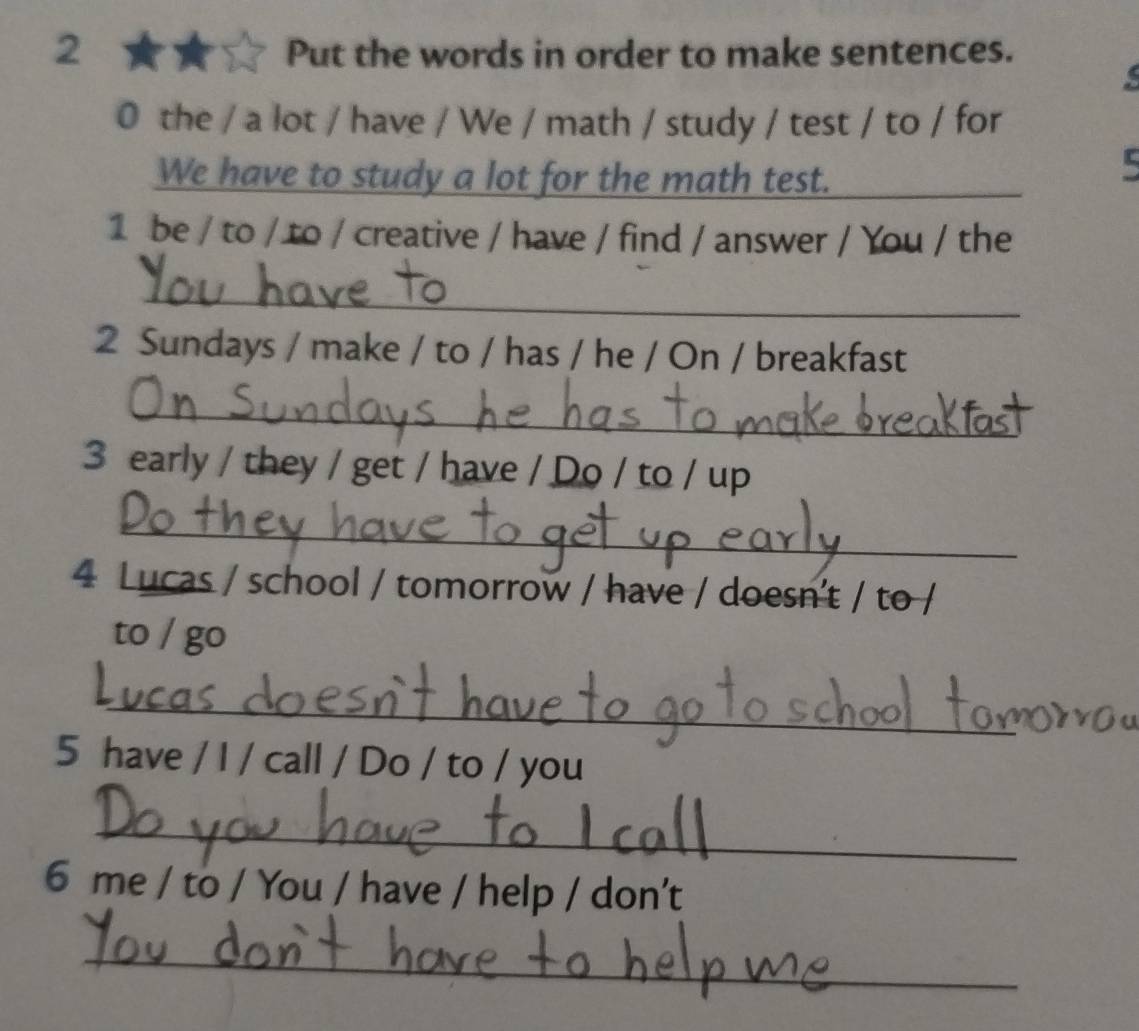 2 ★★☆ Put the words in order to make sentences.
0 the / a lot / have / We / math / study / test / to / for
We have to study a lot for the math test.
1 be / to / to / creative / have / find / answer / You / the
You have to
2 Sundays / make / to / has / he / On / breakfast
On Sundays he has to make breakfast
3 early / they / get / have / Do / to / up
Do they have to get up early
4 Lucas / school / tomorrow / have / doesn't / to /
to / go
Lucas doesn't have to go to school tomorrow
5 have / I / call / Do / to / you
Do you have to I call
6 me / to / You / have / help / don't
You don't have to help me